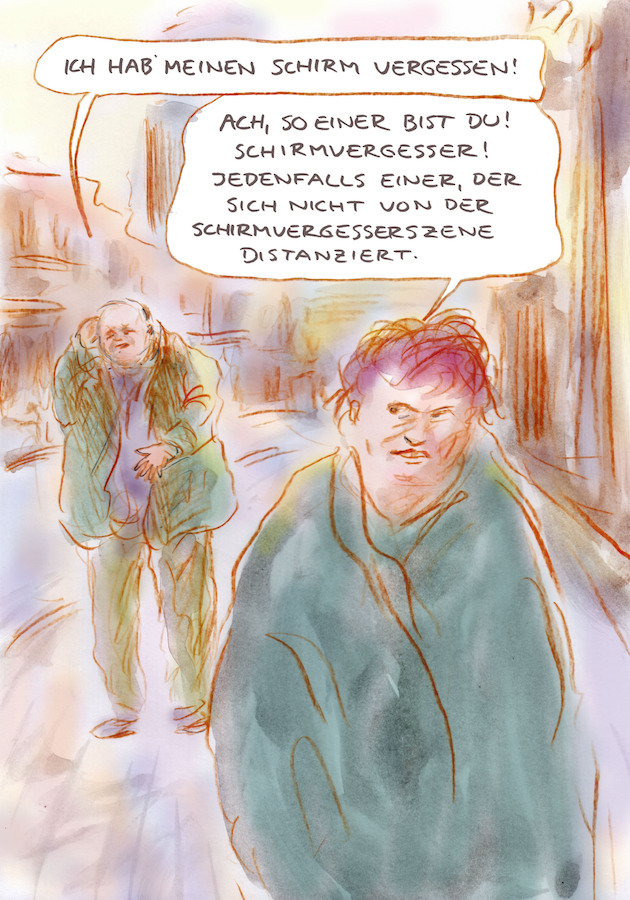 ICH HAB' MEINEN SCHIRM VERGESSEN!
ACH, SO EINER BIST DU!
SCHIRMVERGESSER!
JEDENFALLS EINER, DER
SICH NICHT VON DER
SCHIRMVERGESSERSZENE
DISTANZIERT.